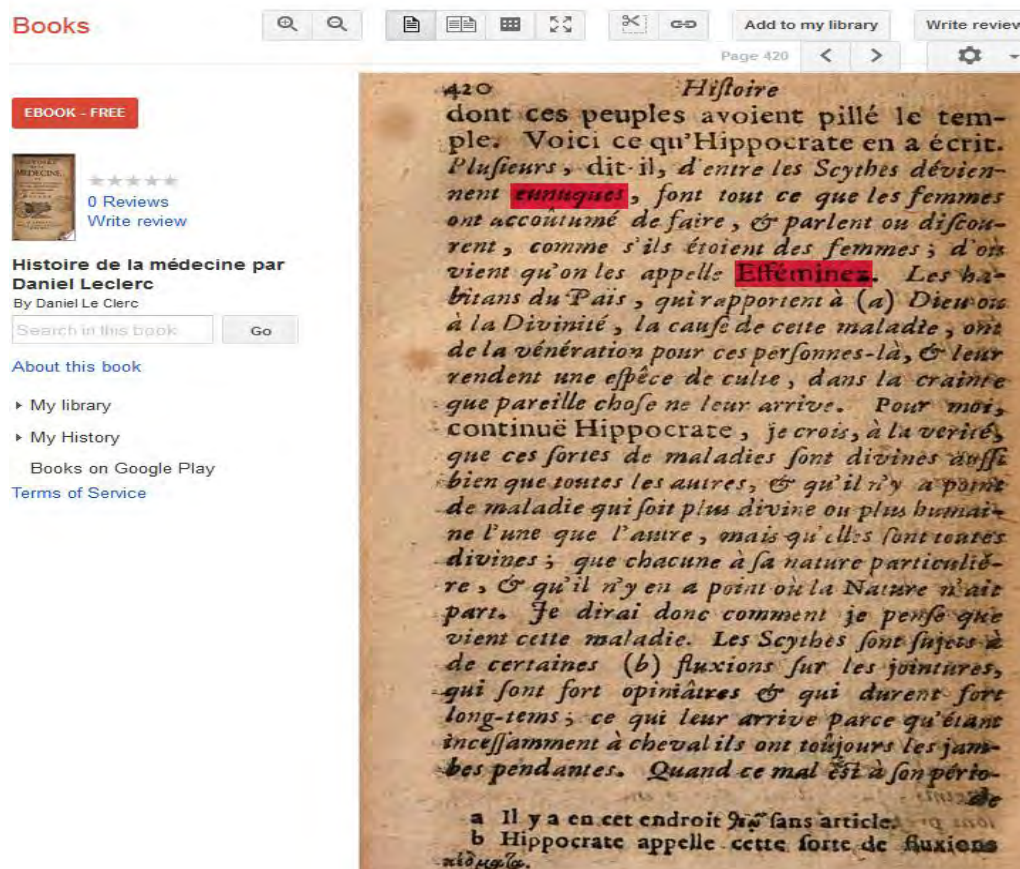 Books
Add to my library
Write review
Page 420
EBOOK - FREE
0 Reviews
Write review
Histoire de la médecine par
Daniel Leclerc
By Daniel Le Clerc
Search in this book
Go
About this book
My library
My History
Books on Google Play
Terms of Service
420 Hiſtoire
dont ces peuples avoient pillé le tem-
ple. Voici ce qu'Hippocrate en a écrit.
Pluſieurs, dit-il, d'entre les Scythes dévien-
nent eunuques, font tout ce que les femmes
ont accoûtumé de faire, & parlent ou diſcou-
rent, comme s'ils étoient des femmes; d'où
vient qu'on les appelle Efféminez. Les ha-
bitans du Païs, qui rapportent à (a) Dieu ou
à la Divinité, la cauſe de cette maladie, ont
de la vénération pour ces perſonnes-là, & leur
rendent une eſpêce de culte, dans la crainte
que pareille choſe ne leur arrive. Pour moi,
continuë Hippocrate, je crois, à la verité,
que ces ſortes de maladies ſont divines auſſi
bien que toutes les autres, & qu'il n'y a point
de maladie qui ſoit plus divine ou plus humai-
ne l'une que l'autre, mais qu'elles ſont toutes
divines; que chacune à ſa nature particuliê-
re, & qu'il n'y en a point où la Nature n'ait
part. Je dirai donc comment je penſe que
vient cette maladie. Les Scythes ſont ſujets à
de certaines (b) fluxions ſur les jointures,
qui ſont fort opiniâtres & qui durent fort
long-tems; ce qui leur arrive parce qu'étant
inceſſamment à cheval ils ont toûjours les jam-
bes pendantes. Quand ce mal est à ſon pério-
de
a Il y a en cet endroit ſans article.
b Hippocrate appelle cette ſorte de fluxions